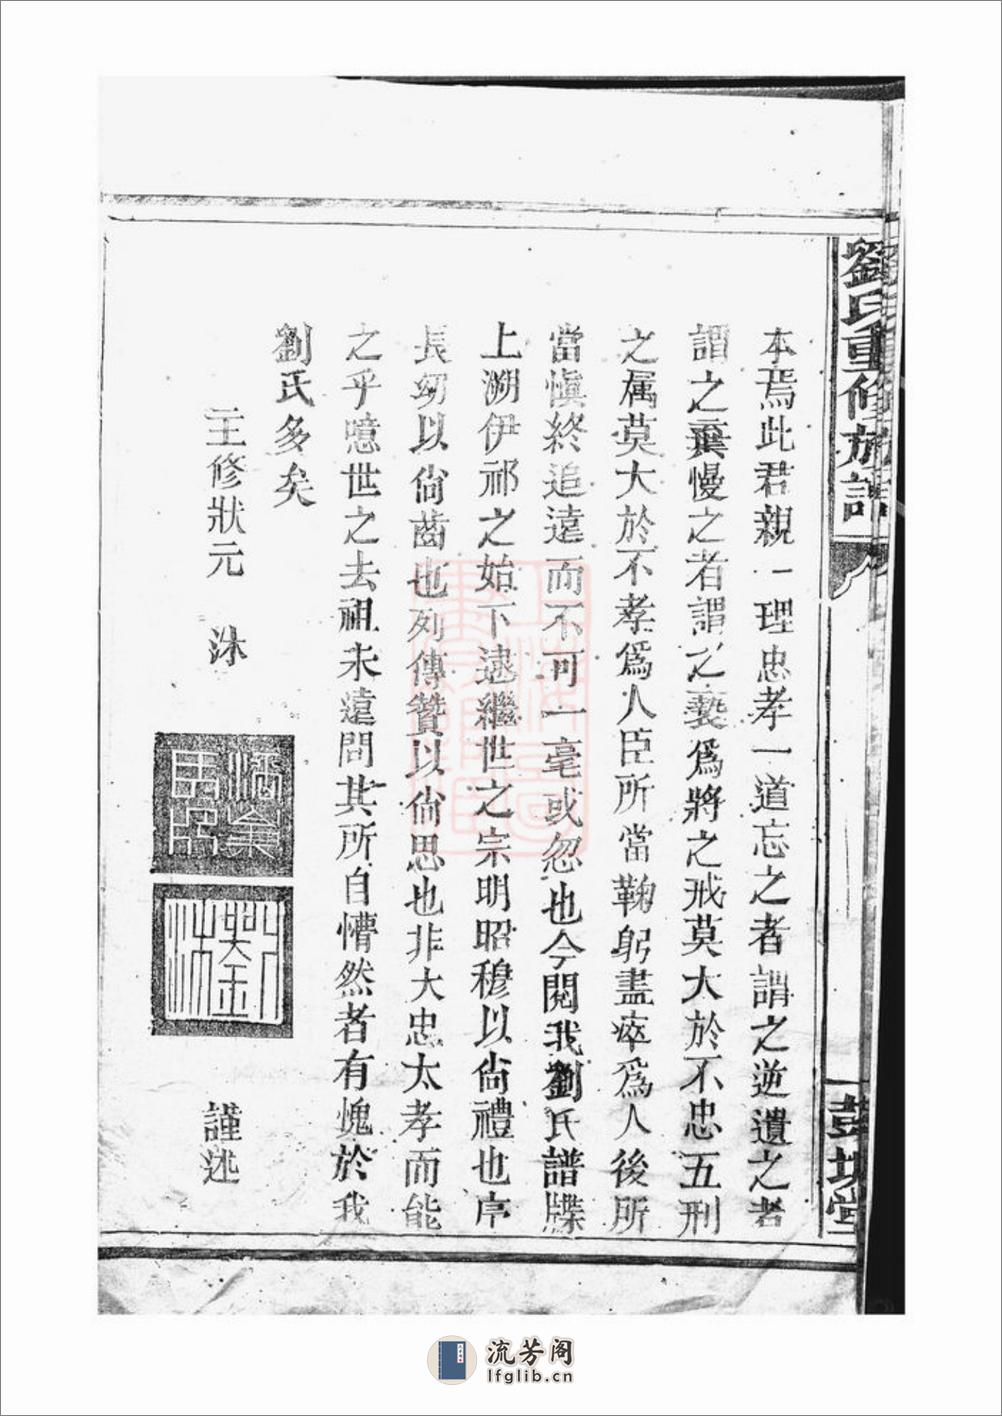 劉氏重修族譜
本焉此君親一理忠孝一道忘之者謂之逆遺之者
謂之棄慢之者謂之褻爲將之戒莫大於不忠五刑
之属莫大於不孝爲人臣所當鞠躬盡瘁爲人後所
當愼終追遠而不可一毫或忽也今閱我劉氏譜牒
上溯伊祁之始下逮繼世之宗明昭穆以尙禮也序
長幼以尙齒也列傳贊以尙思也非大忠太孝而能
之乎噫世之去祖未遠問其所自懵然者有愧於我
劉氏多矣
主修狀元 沐
謹述
上海圖書館藏
流芳阁
lfglib.cn